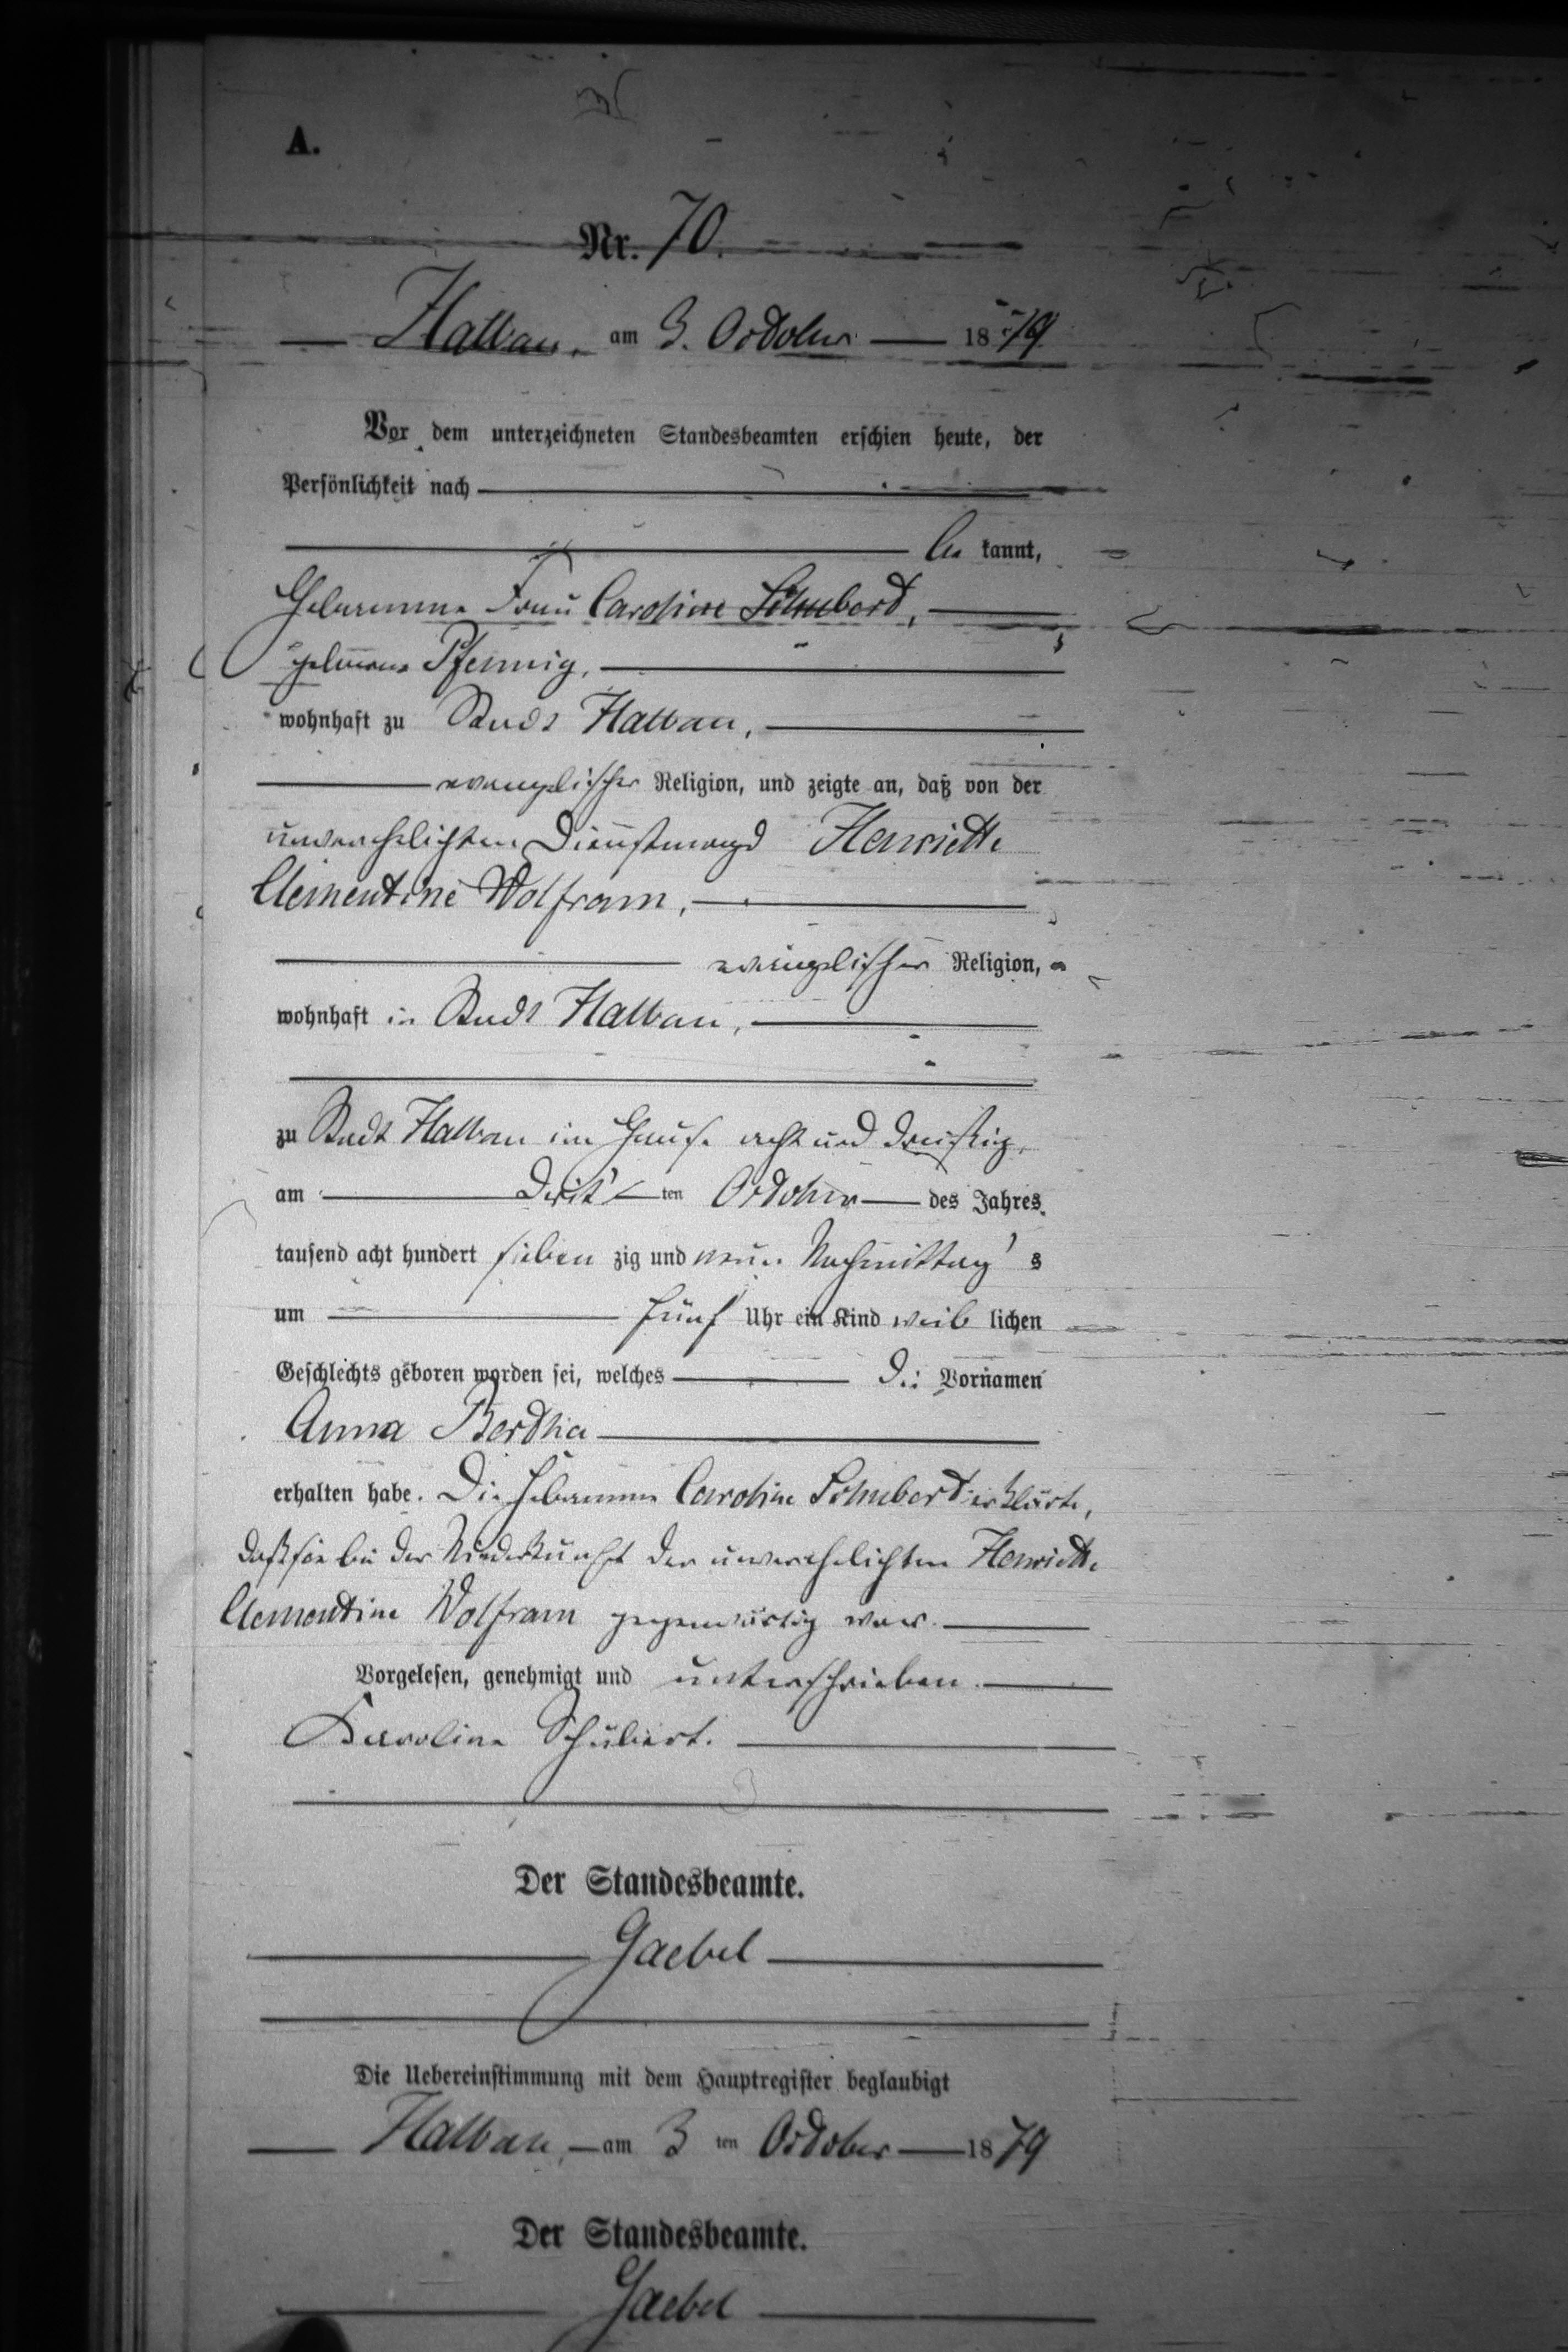 A.
Nr. 70.
Halbau, am 3. October 1879
Vor dem unterzeichneten Standesbeamten erschien heute, der
Persönlichkeit nach
be kannt,
Hebamme Frau Caroline Schubert,
geborene Pfennig,
wohnhaft zu Stadt Halbau,
evangelischer Religion, und zeigte an, daß von der
unverehelichten Dienstmagd Henriette
Clementine Wolfram,
evangelischer Religion,
wohnhaft in Stadt Halbau,
zu Stadt Halbau im Hause acht und dreißig,
am ten October des Jahres
tausend acht hundert sieben zig und neun Nachmittag s
um fünf Uhr ein Kind weib lichen
Geschlechts geboren worden sei, welches die Vornamen
Anna Bertha
erhalten habe. Die Hebamme Caroline Schubert erklärte,
daß sie bei der Niederkunft der unverehelichten Henriette
Clementine Wolfram gegenwärtig war.
Vorgelesen, genehmigt und unterschrieben.
Karoline Schubert.
Der Standesbeamte.
Gaebel
Die Uebereinstimmung mit dem Hauptregister beglaubigt
Halbau, am 3 ten October 1879
Der Standesbeamte.
Gaebel